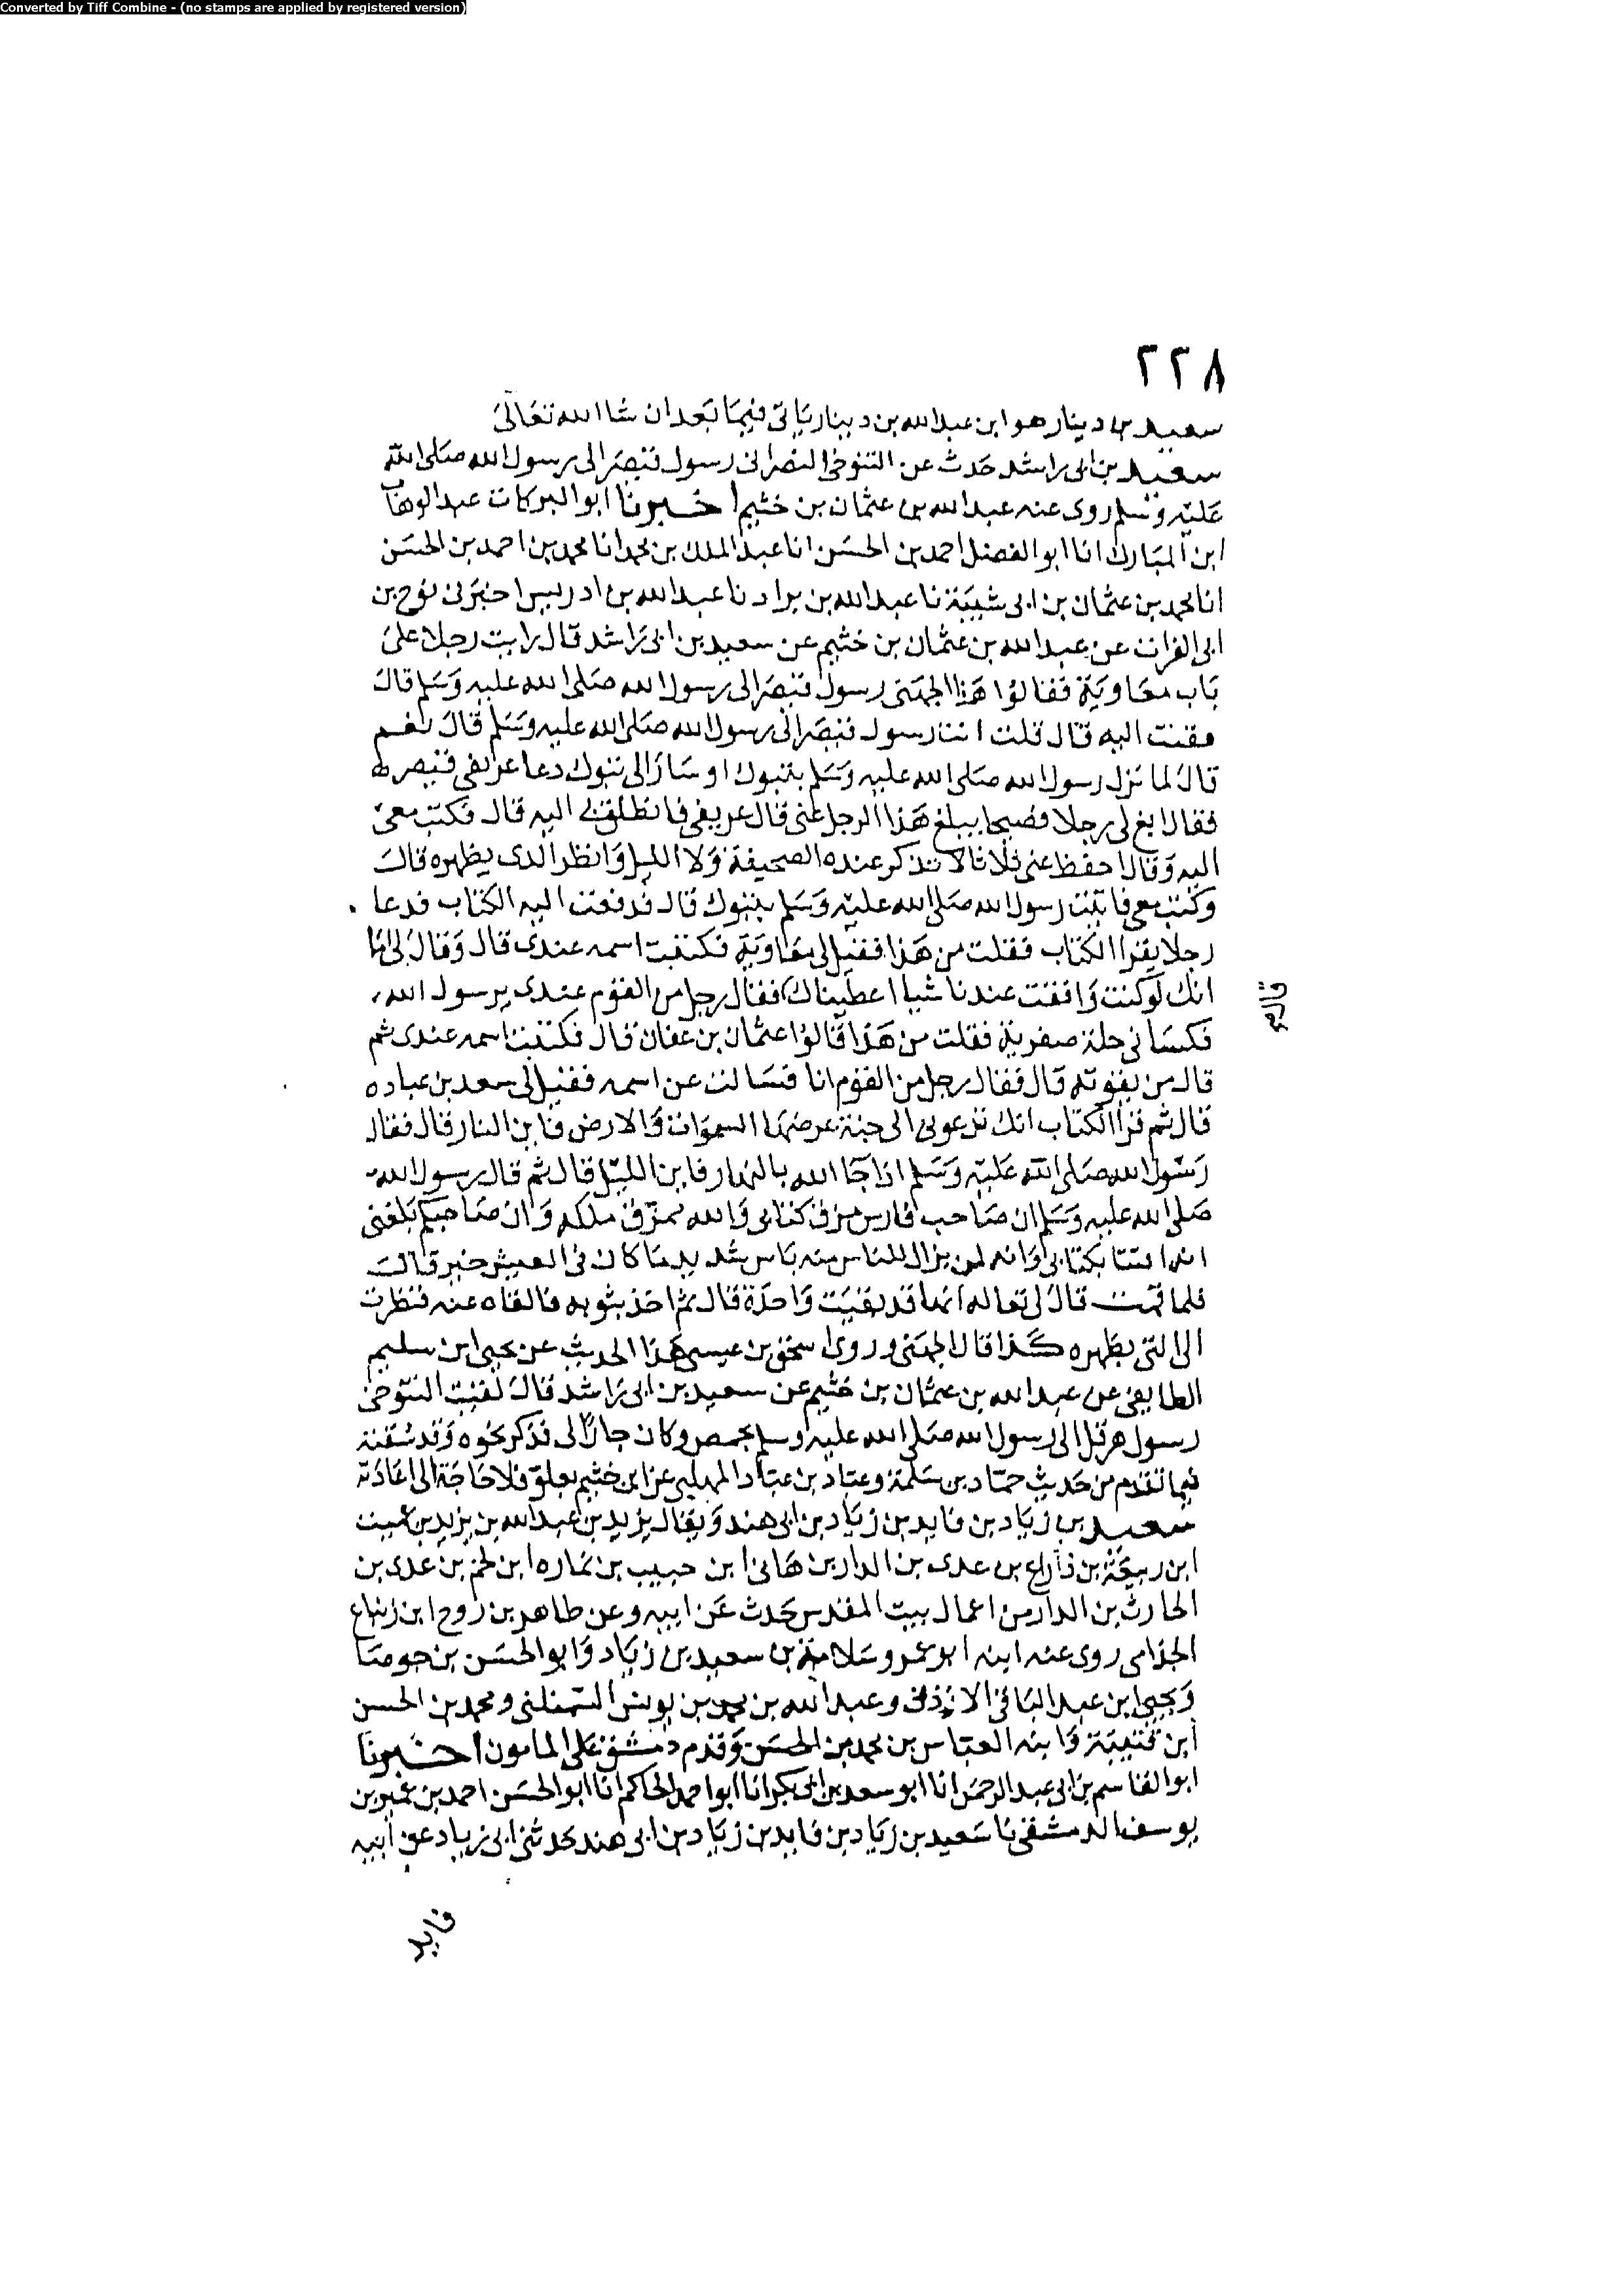 Converted by Tiff Combine - (no stamps are applied by registered version)
٢٢٨
سعيد بن دينار هو ابن عبد الله بن دينار ياتى فيما بعد ان شا الله تعالى
سعيد بن ابى راشد حدث عن التنوخى النصرانى رسول قيصر الى رسول الله صلى الله
عليه وسلم روى عنه عبد الله بن عثمان بن خثيم اخبرنا ابو البركات عبد الوهاب
ابن المبارك انا ابو الفضل احمد بن الحسن انا عبد الملك بن محمد انا محمد بن احمد بن الحسن
انا محمد بن عثمان بن ابى شيبة نا عبد الله بن براد نا عبد الله بن ادريس اخبرنى نوح بن
ابى الفرات عن عبد الله بن عثمان بن خثيم عن سعيد بن ابى راشد قال رايت رجلا على
باب معاوية فقالوا هذا الجهنى رسول قيصر الى رسول الله صلى الله عليه وسلم قال
فقمت اليه قال قلت انت رسول قيصر الى رسول الله صلى الله عليه وسلم قال نعم
قال لما نزل رسول الله صلى الله عليه وسلم بتبوك او سار الى تبوك دعا عريفى قيصرها
فقال ابغ لى رجلا فصيحا يبلغ هذا الرجل عنى قال عريفى فانطلق بى اليه قال فكتب معى
اليه وقال احفظ عنى ثلاثا لا تذكر عنده الصحيفة ولا الليل وانظر الذى بظهره قال
وكتب معى فاتيت رسول الله صلى الله عليه وسلم بتبوك قال فدفعت اليه الكتاب فدعا
رجلا يقرا الكتاب فقلت من هذا فقيل لى معاوية فكتبت اسمه عندى قال وقال لى اما
انك لو كنت وافقت عندنا شيا اعطيناك فقال رجل من القوم عندى يرسول الله
قال هو
فكسانى حلة صفرية فقلت من هذا قالوا عثمان بن عفان قال فكتبت اسمه عندى ثم
قال من يقوته قال فقال رجل من القوم انا فسالت عن اسمه فقيل لى سعد بن عباده
قال ثم قرا الكتاب انك تدعونى الى جنة عرضها السموات والارض فاين النار قال فقال
رسول الله صلى الله عليه وسلم اذا جا الله بالنهار فاين الليل قال ثم قال رسول الله
صلى الله عليه وسلم ان صاحب فارس مزق كتابى والله يمزق ملكه وان صاحبكم بلغنى
انه بكتابى وانه لن يزال للناس منه باس شديد ما كان فى العيش خير قال
فلما قمت قال لى تعاله انها قد بقيت واحدة قال ثم اخذ بثوبه فالقاه عنه فنظرت
الى التى بظهره كذا قال الجهنى وروى اسحق بن عيسى هذا الحديث عن يحيى ابن سليم
الطايفى عن عبد الله بن عثمان بن خثيم عن سعيد بن ابى راشد قال لقيت التنوخى
رسول هرقل الى رسول الله صلى الله عليه وسلم بحمص وكان جارا لى فذكر نحوه وقد سقته
فيما تقدم من حديث حماد بن سلمة وعباد بن عباد المهلبى عن ابن خثيم بعلو فلا حاجة الى اعادته
سعيد بن زياد بن فايد بن زياد بن ابى هند ويقال يزيد بن عبد الله بن يزيد بن عميت
ابن ربيعة بن ذراع بن عدى بن الدار بن هانى ابن حبيب بن نماره ابن لخم بن عدى بن
الحارث بن الدار من اعمال بيت المقدس حدث عن ابيه وعن طاهر بن روح ابن زنباع
الجذامى روى عنه ابنه ابو عمرو سلامة بن سعيد بن زياد وابو الحسن بن حوصا
ويحيى ابن عبد الباقى الاذنى وعبد الله بن محمد بن يونس السمنانى ومحمد بن الحسن
ابن قتيبة وابنه العباس بن محمد بن الحسن وقدم دمشق على المامون اخبرنا
ابو القاسم بن ابى عبد الرحمن انا ابو سعد بن ابى بكر انا ابو احمد الحاكم انا ابو الحسن احمد بن عمير بن
يوسف الدمشقى نا سعيد بن زياد بن فايد بن زياد بن ابى هند حدثنى ابى زياد عن ابيه
فايد